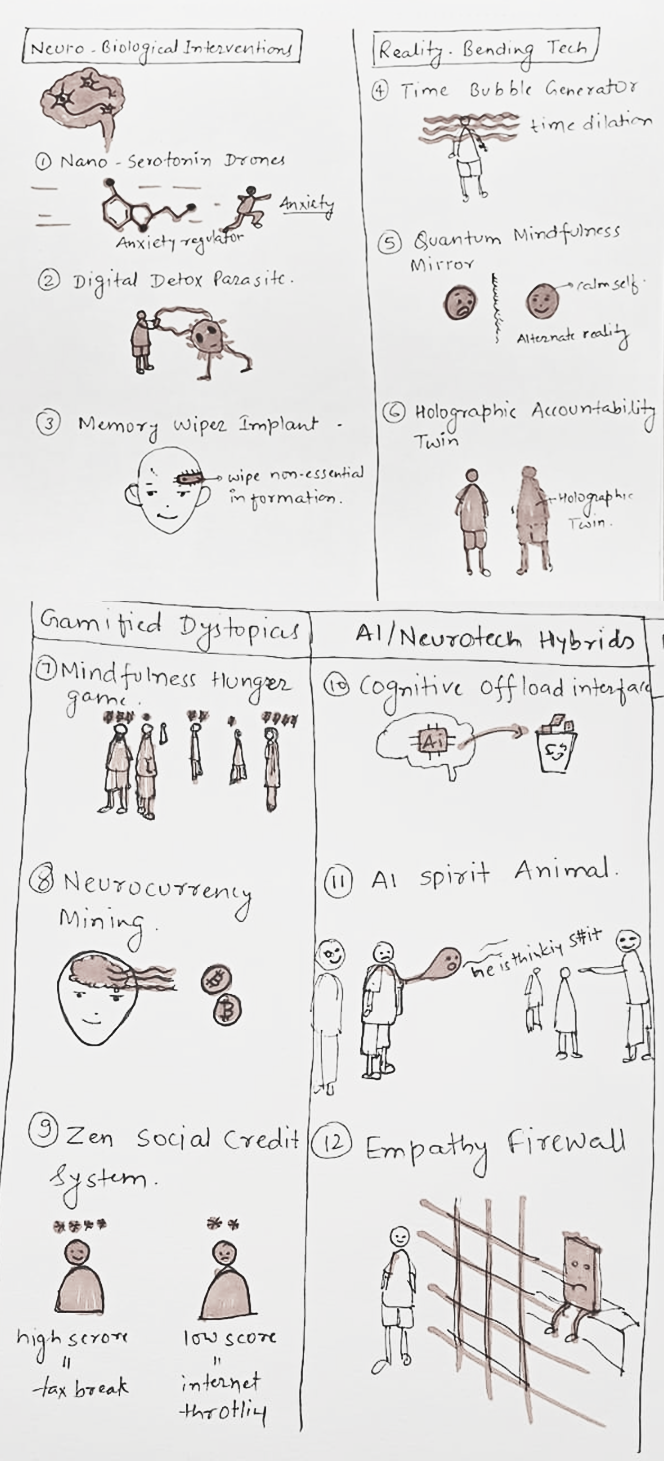 Neuro-Biological Interventions
① Nano-Serotonin Drones
Anxiety
Anxiety regulator
② Digital Detox Parasite.
③ Memory Wiper Implant.
wipe non-essential
information.
Reality-Bending Tech
④ Time Bubble Generator
time dilation
⑤ Quantum Mindfulness
Mirror
calm self.
Alternate reality
⑥ Holographic Accountability
Twin
Holographic
Twin.
Gamified Dystopias
⑦ Mindfulness Hunger
game.
⑧ Neurocurrency
Mining.
₿
₿
⑨ Zen Social Credit
System.
high score
=
tax break
low score
=
internet
throtliy
AI/Neurotech Hybrids
⑩ Cognitive Offload interface
Ai
⑪ AI spirit Animal.
he is thinkiy s#it
⑫ Empathy Firewall